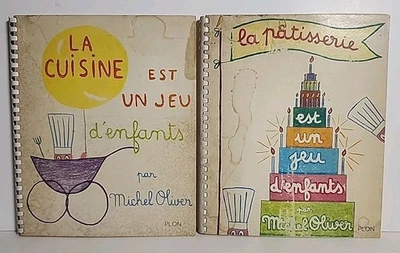 LA
CUISINE
EST
UN JEU
d'enfants
par
Michel Oliver
PLON
la pâtisserie
est
un
jeu
d'enfants
par
Michel Oliver
PLON